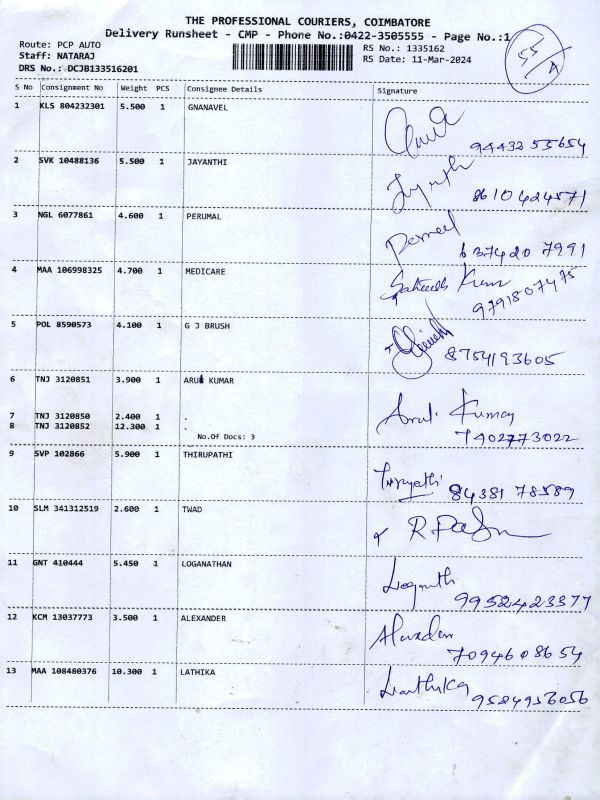 THE PROFESSIONAL COURIERS, COIMBATORE
Delivery Runsheet - CMP - Phone No.:0422-3505555 - Page No.:1
Route: PCP AUTO RS No.: 1335162
Staff: NATARAJ RS Date: 11-Mar-2024
DRS No.: DCJB133516201
55
A
S No Consignment No Weight PCS Consignee Details Signature
1 KLS 804232301 5.500 1 GNANAVEL
94432 55654
2 SVK 10488136 5.500 1 JAYANTHI
8610424571
3 NGL 6077861 4.600 1 PERUMAL
637420 7991
4 MAA 106998325 4.700 1 MEDICARE
9791807475
5 POL 8590573 4.100 1 G J BRUSH
8754193605
6 TNJ 3120851 3.900 1 ARUL KUMAR
7 TNJ 3120850 2.400 1 .
Arul Kumar
8 TNJ 3120852 12.300 1 .
No.Of Docs: 3
7402773022
9 SVP 102866 5.900 1 THIRUPATHI
84381 78589
10 SLM 341312519 2.600 1 TWAD
11 GNT 410444 5.450 1 LOGANATHAN
9952423377
12 KCM 13037773 3.500 1 ALEXANDER
7094608654
13 MAA 108480376 10.300 1 LATHIKA
9584956056